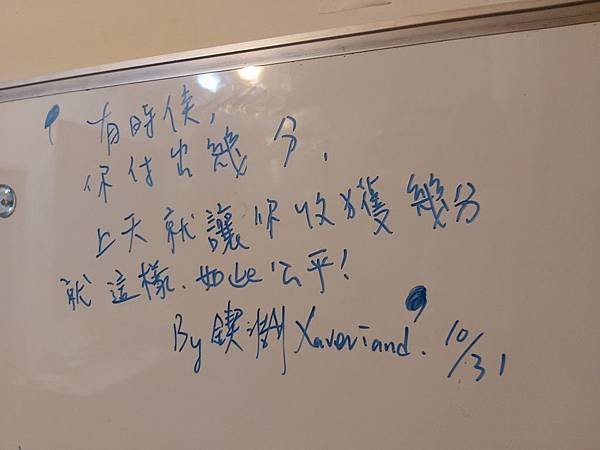 有時候,
你付出幾分,
上天就讓你收獲幾分
就這樣.如此公平!
By 鍥澍 Xaveriand. 10/31